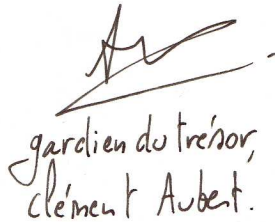 gardien du trésor,
Clément Aubert.